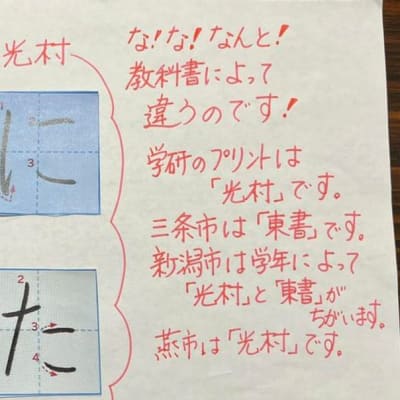 光村
な!な!なんと!
教科書によって
違うのです!
学研のプリントは
「光村」です。
三条市は「東書」です。
新潟市は学年によって
「光村」と「東書」が
ちがいます。
燕市は「光村」です。
に
3
た
2
3
4